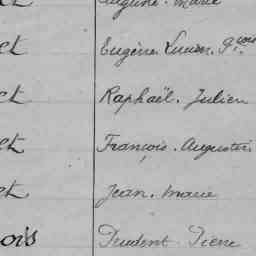 et Auguste. Marie
et Eugène. Lucien. Fçois
et Raphaël. Julien
et François. Auguste
et Jean. Marie
ois Prudent. Pierre